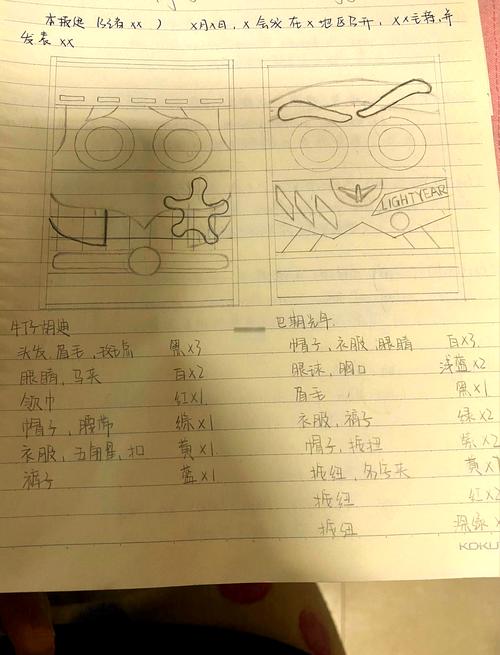 本报迪（记者 xx ） x月x日，x会议在x地区召开，xx主持，并
发表 xx
LIGHTYEAR
牛仔胡迪
头发，眉毛，斑点 黑x3
眼睛，马夹 白x2
领巾 红x1
帽子，腰带 棕x1
衣服，五角星，扣 黄x1
裤子 蓝x1
巴斯光年
帽子，衣服，眼睛 白x3
眼珠，胸口 浅蓝x2
眉毛 黑x1
衣服，裤子 绿x2
帽子，按扭 紫x2
按纽，名字夹 黄x
按纽 红x2
按纽 深绿x
KOKU